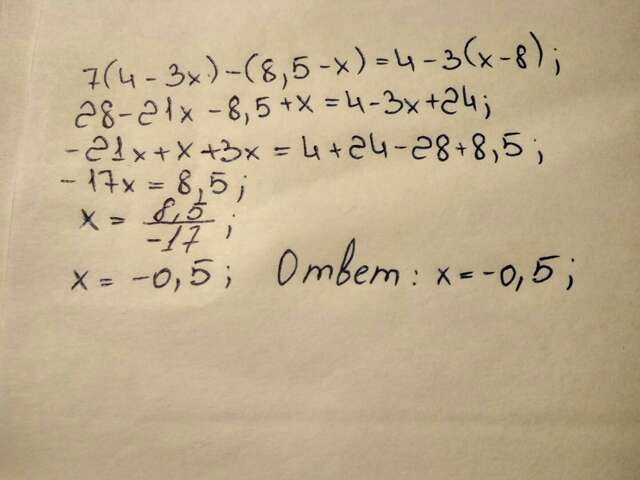 7(4-3x)-(8,5-x)=4-3(x-8);
28-21x-8,5+x=4-3x+24;
-21x+x+3x=4+24-28+8,5;
-17x=8,5;
x=8,5/-17;
x=-0,5; Ответ: x=-0,5;